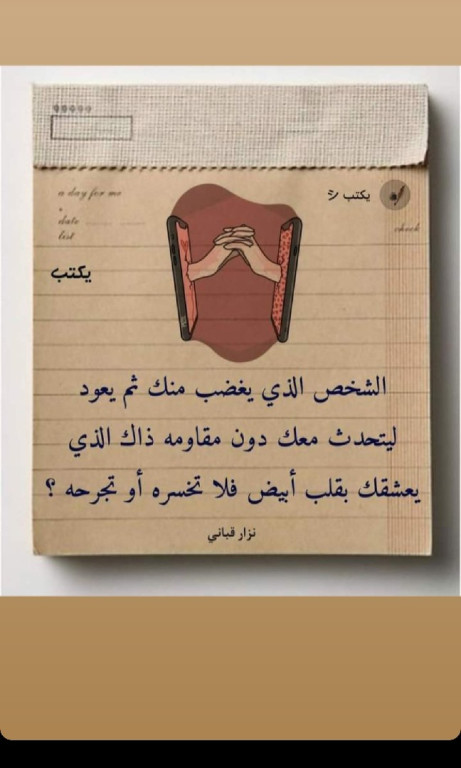 يكتب シ
a day for me
date
list
check
يكتب
الشخص الذي يغضب منك ثم يعود
ليتحدث معك دون مقاومه ذاك الذي
يعشقك بقلب أبيض فلا تخسره أو تجرحه ؟
نزار قباني